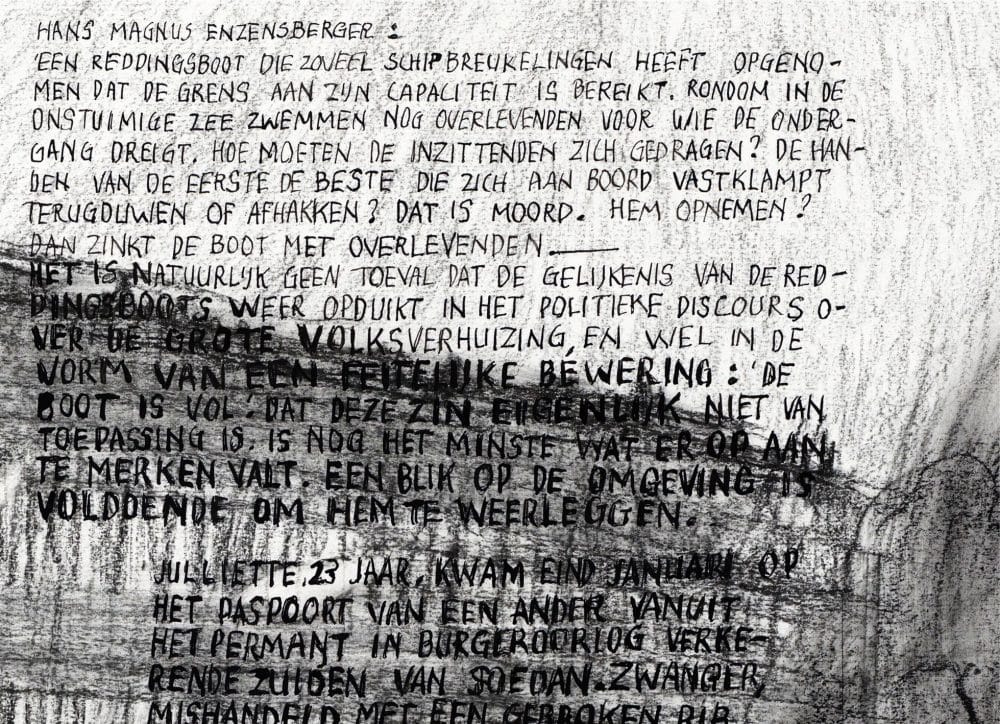 HANS MAGNUS ENZENSBERGER :
'EEN REDDINGSBOOT DIE ZOVEEL SCHIPBREUKELINGEN HEEFT OPGENO-
MEN DAT DE GRENS AAN ZIJN CAPACITEIT IS BEREIKT. RONDOM IN DE
ONSTUIMIGE ZEE ZWEMMEN NOG OVERLEVENDEN VOOR WIE DE ONDER-
GANG DREIGT. HOE MOETEN DE INZITTENDEN ZICH GEDRAGEN? DE HAN-
DEN VAN DE EERSTE DE BESTE DIE ZICH AAN BOORD VASTKLAMPT
TERUGDUWEN OF AFHAKKEN? DAT IS MOORD. HEM OPNEMEN?
DAN ZINKT DE BOOT MET OVERLEVENDEN ——
HET IS NATUURLIJK GEEN TOEVAL DAT DE GELIJKENIS VAN DE RED-
DINGSBOOTS WEER OPDUIKT IN HET POLITIEKE DISCOURS O-
VER DE GROTE VOLKSVERHUIZING, EN WEL IN DE
VORM VAN EEN FEITELIJKE BEWERING : 'DE
BOOT IS VOL'. DAT DEZE ZIN EIIGENLIJK NIET VAN
TOEPASSING IS, IS NOG HET MINSTE WAT ER OP AAN
TE MERKEN VALT. EEN BLIK OP DE OMGEVING IS
VOLDOENDE OM HEM TE WEERLEGGEN.
JULLIETTE, 23 JAAR, KWAM EIND JANUARI OP
HET PASPOORT VAN EEN ANDER VANUIT
HET PERMANT IN BURGEROORLOG VERKE-
RENDE ZUIDEN VAN SOEDAN. ZWANGER,
MISHANDELD MET EEN GEBROKEN RIB